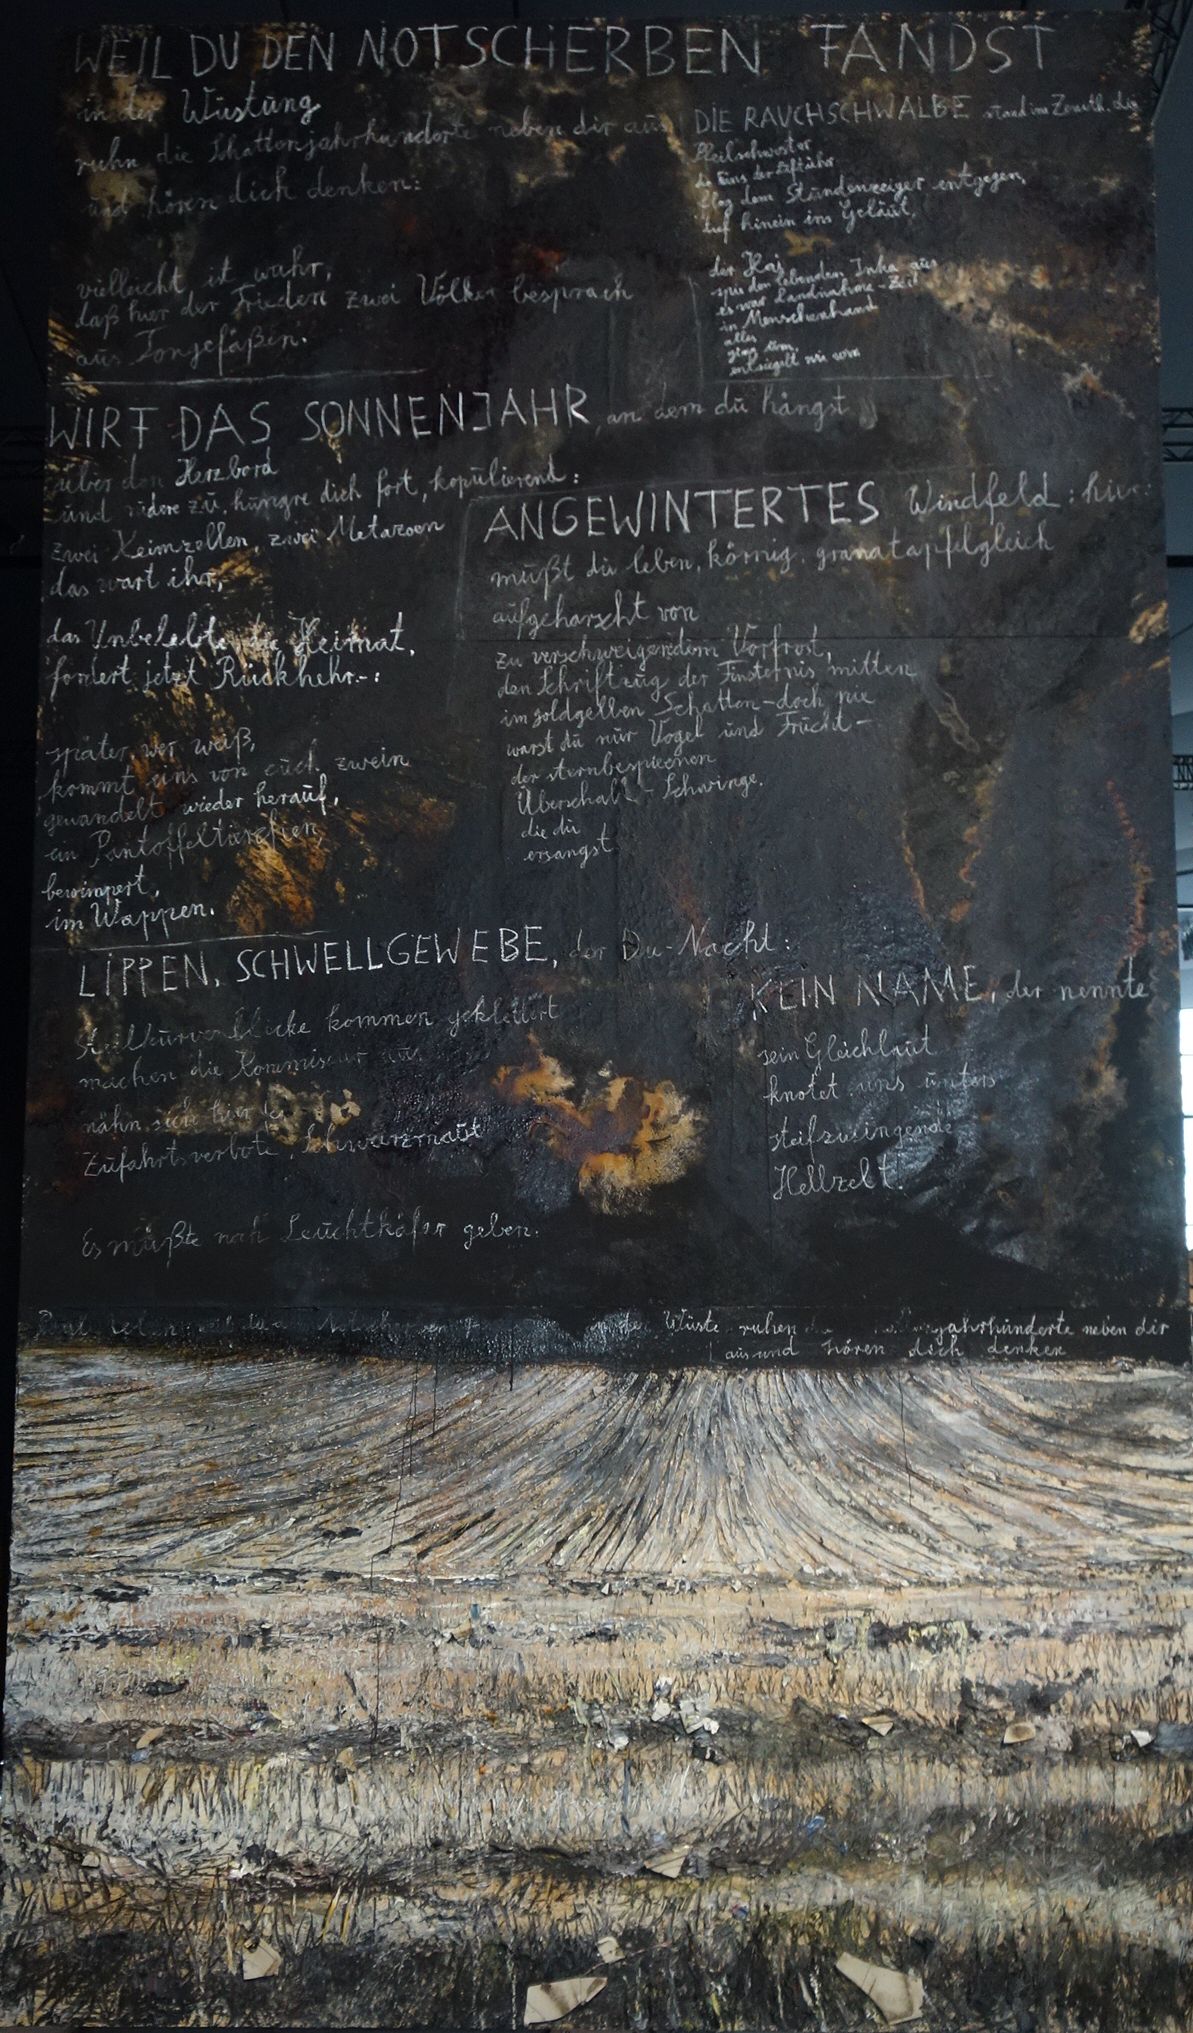 WEIL DU DEN NOTSCHERBEN FANDST
in der Wüstung
ruhn die Schattenjahrhunderte neben dir aus
und hören dich denken:
vielleicht ist wahr,
daß hier der Frieden zwei Völker besprach
aus Tongefäßen.
DIE RAUCHSCHWALBE stand im Zenith, die
Pfeilschwester
die Eins der Luftuhr
flog dem Stundenzeiger entgegen,
tief hinein ins Geläut,
der Hai
spie den lebenden Inka aus
es war Landnahme-Zeit
in Menschenhand
alles
ging um,
entsiegelt wie wir
WIRF DAS SONNENJAHR, an dem du hängst
über den Herzbord
und rudere zu, hungre dich fort, kopulierend:
zwei Keimzellen, zwei Metazoen
das wart ihr,
das Unbelebte, die Heimat,
fordert jetzt Rückkehr-:
später, wer weiß,
kommt eins von euch zwein
gewandelt wieder herauf,
ein Pantoffeltierchen,
bewimpert,
im Wappen.
ANGEWINTERTES Windfeld: hier
mußt du leben, körnig, granatapfelgleich
aufgeharscht von
zu verschweigendem Vorfrost,
den Schriftzug der Finsternis mitten
im goldgelben Schatten - doch nie
warst du nur Vogel und Frucht -
der sternbespieenen
Überschall-Schwinge,
die du
ersangst
LIPPEN, SCHWELLGEWEBE, der Du-Nacht:
Steilkurvenblicke kommen geklettert
machen die Kommissur aus
nähn sich hier
Zufahrtsverbote, Schwarzmaut
Es müßte noch Leuchtkäfer geben.
KEIN NAME, der nennte
sein Gleichlaut
knotet uns unters
steifzusingende
Hellzelt.
Wüste ruhen jahrhunderte neben dir
aus und hören dich denken